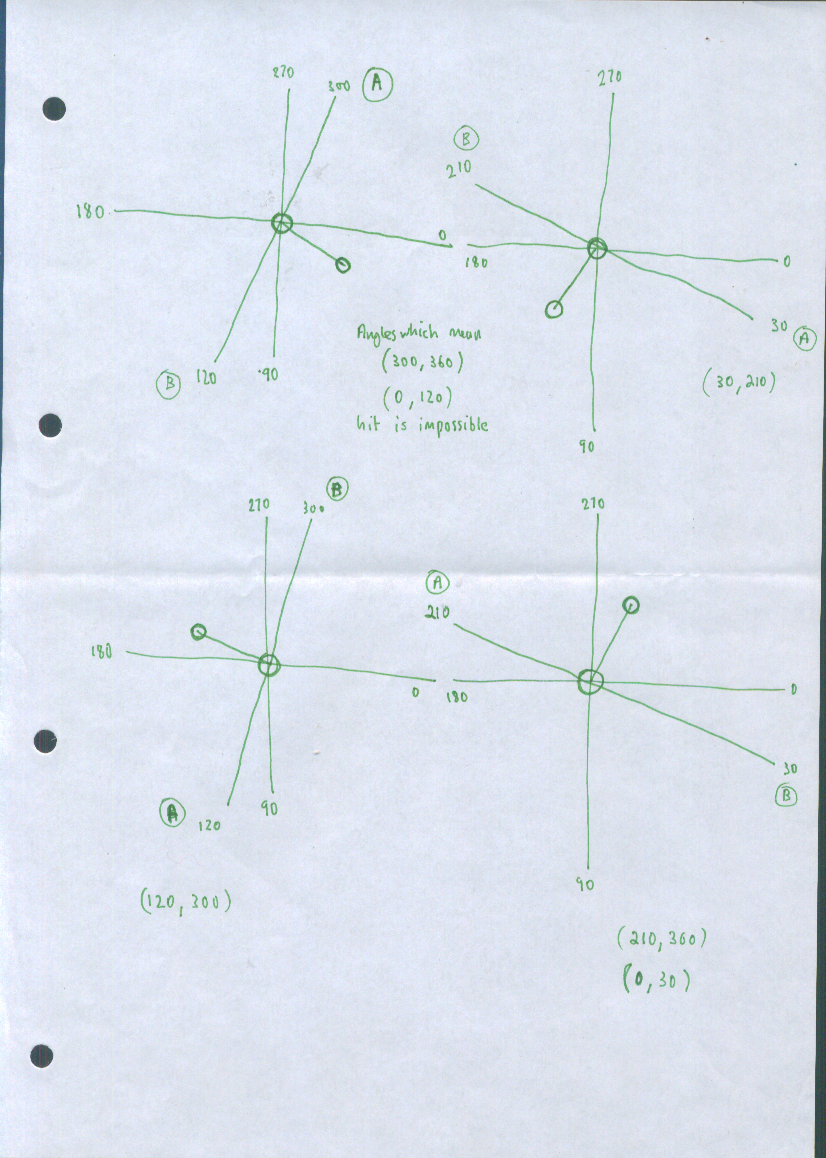 270
300 A
180
0
B 120 90
Angles which mean
(300, 360)
(0, 120)
hit is impossible
270
B
210
180
0
30 A
(30, 210)
90
270 300 B
180
0
A 120 90
(120, 300)
270
A
210
180
0
30
B
90
(210, 360)
(0, 30)